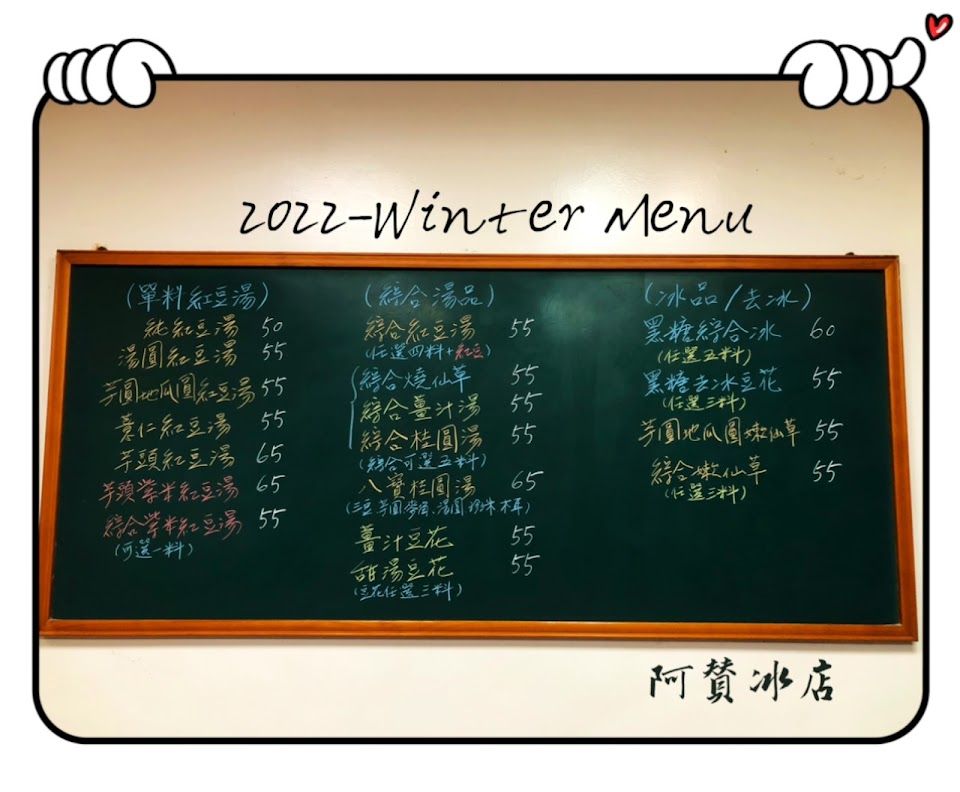 2022-Winter Menu
(單料紅豆湯)
純紅豆湯 50
湯圓紅豆湯 55
芋圓地瓜圓紅豆湯 55
薏仁紅豆湯 55
芋頭紅豆湯 65
芋頭紫米紅豆湯 65
綜合紫米紅豆湯 55
(可選一料)
(綜合湯品)
綜合紅豆湯 55
(任選四料+紅豆)
綜合燒仙草 55
綜合薑汁湯 55
綜合桂圓湯 55
(綜合可選五料)
八寶桂圓湯 65
薑汁豆花 55
甜湯豆花 55
(豆花任選三料)
(冰品/去冰)
黑糖綜合冰 60
(任選五料)
黑糖去冰豆花 55
(任選三料)
芋圓地瓜圓嫩仙草 55
綜合嫩仙草 55
(任選三料)
阿贊冰店